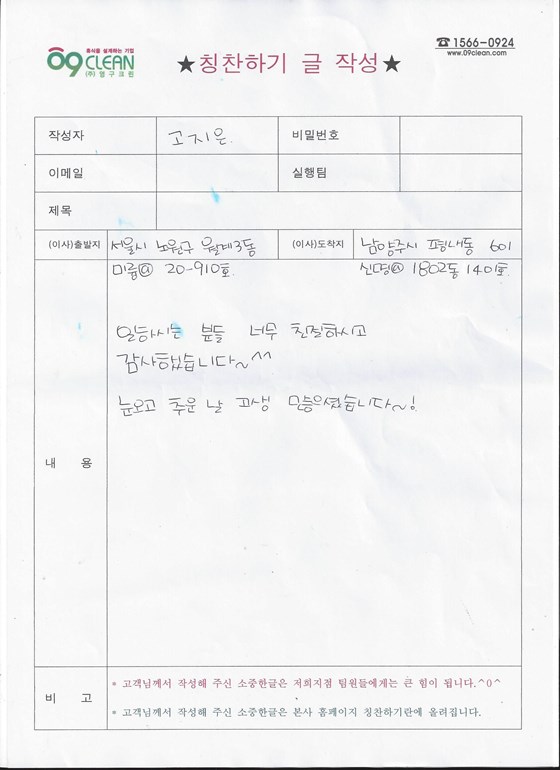 휴식을 설계하는 기업
09 CLEAN
(주)영구크린
★칭찬하기 글 작성★
☎1566-0924
www.09clean.com
작성자 고지은 비밀번호
이메일 실행팀
제목
(이사)출발지 서울시 노원구 월계3동 (이사)도착지 남양주시 평내동 601
미륭@ 20-910호 신명@ 1802동 1401호
일하시는 분들 너무 친절하시고
감사했습니다~^^
눈오고 추운 날 고생 많으셨습니다~!
내 용
* 고객님께서 작성해 주신 소중한글은 저희지점 팀원들에게는 큰 힘이 됩니다.^0^
비 고
* 고객님께서 작성해 주신 소중한글은 본사 홈페이지 칭찬하기란에 올려집니다.